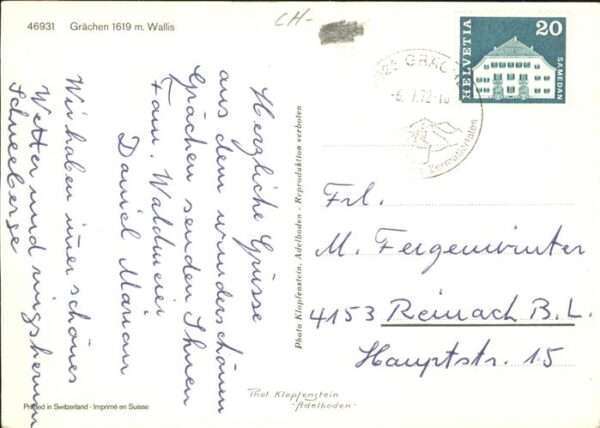 46931 Grächen 1619 m. Wallis
CH-
HELVETIA
20
SAMEDAN
GRÄCH
Herzliche Grüsse
aus dem wunderschönen
Grächen senden Ihnen
Fam. Waldmeier
Daniel Marian
Wir haben imer schönes
Wetter und ringsherum
Schneeberge
Photo Klopfenstein, Adelboden - Reproduktion verboten
Frl.
M. Feigenwinter
4153 Reinach B.L.
Hauptstr. 15
Phot. Klopfenstein
-Adelboden-
Printed in Switzerland - Imprimé en Suisse